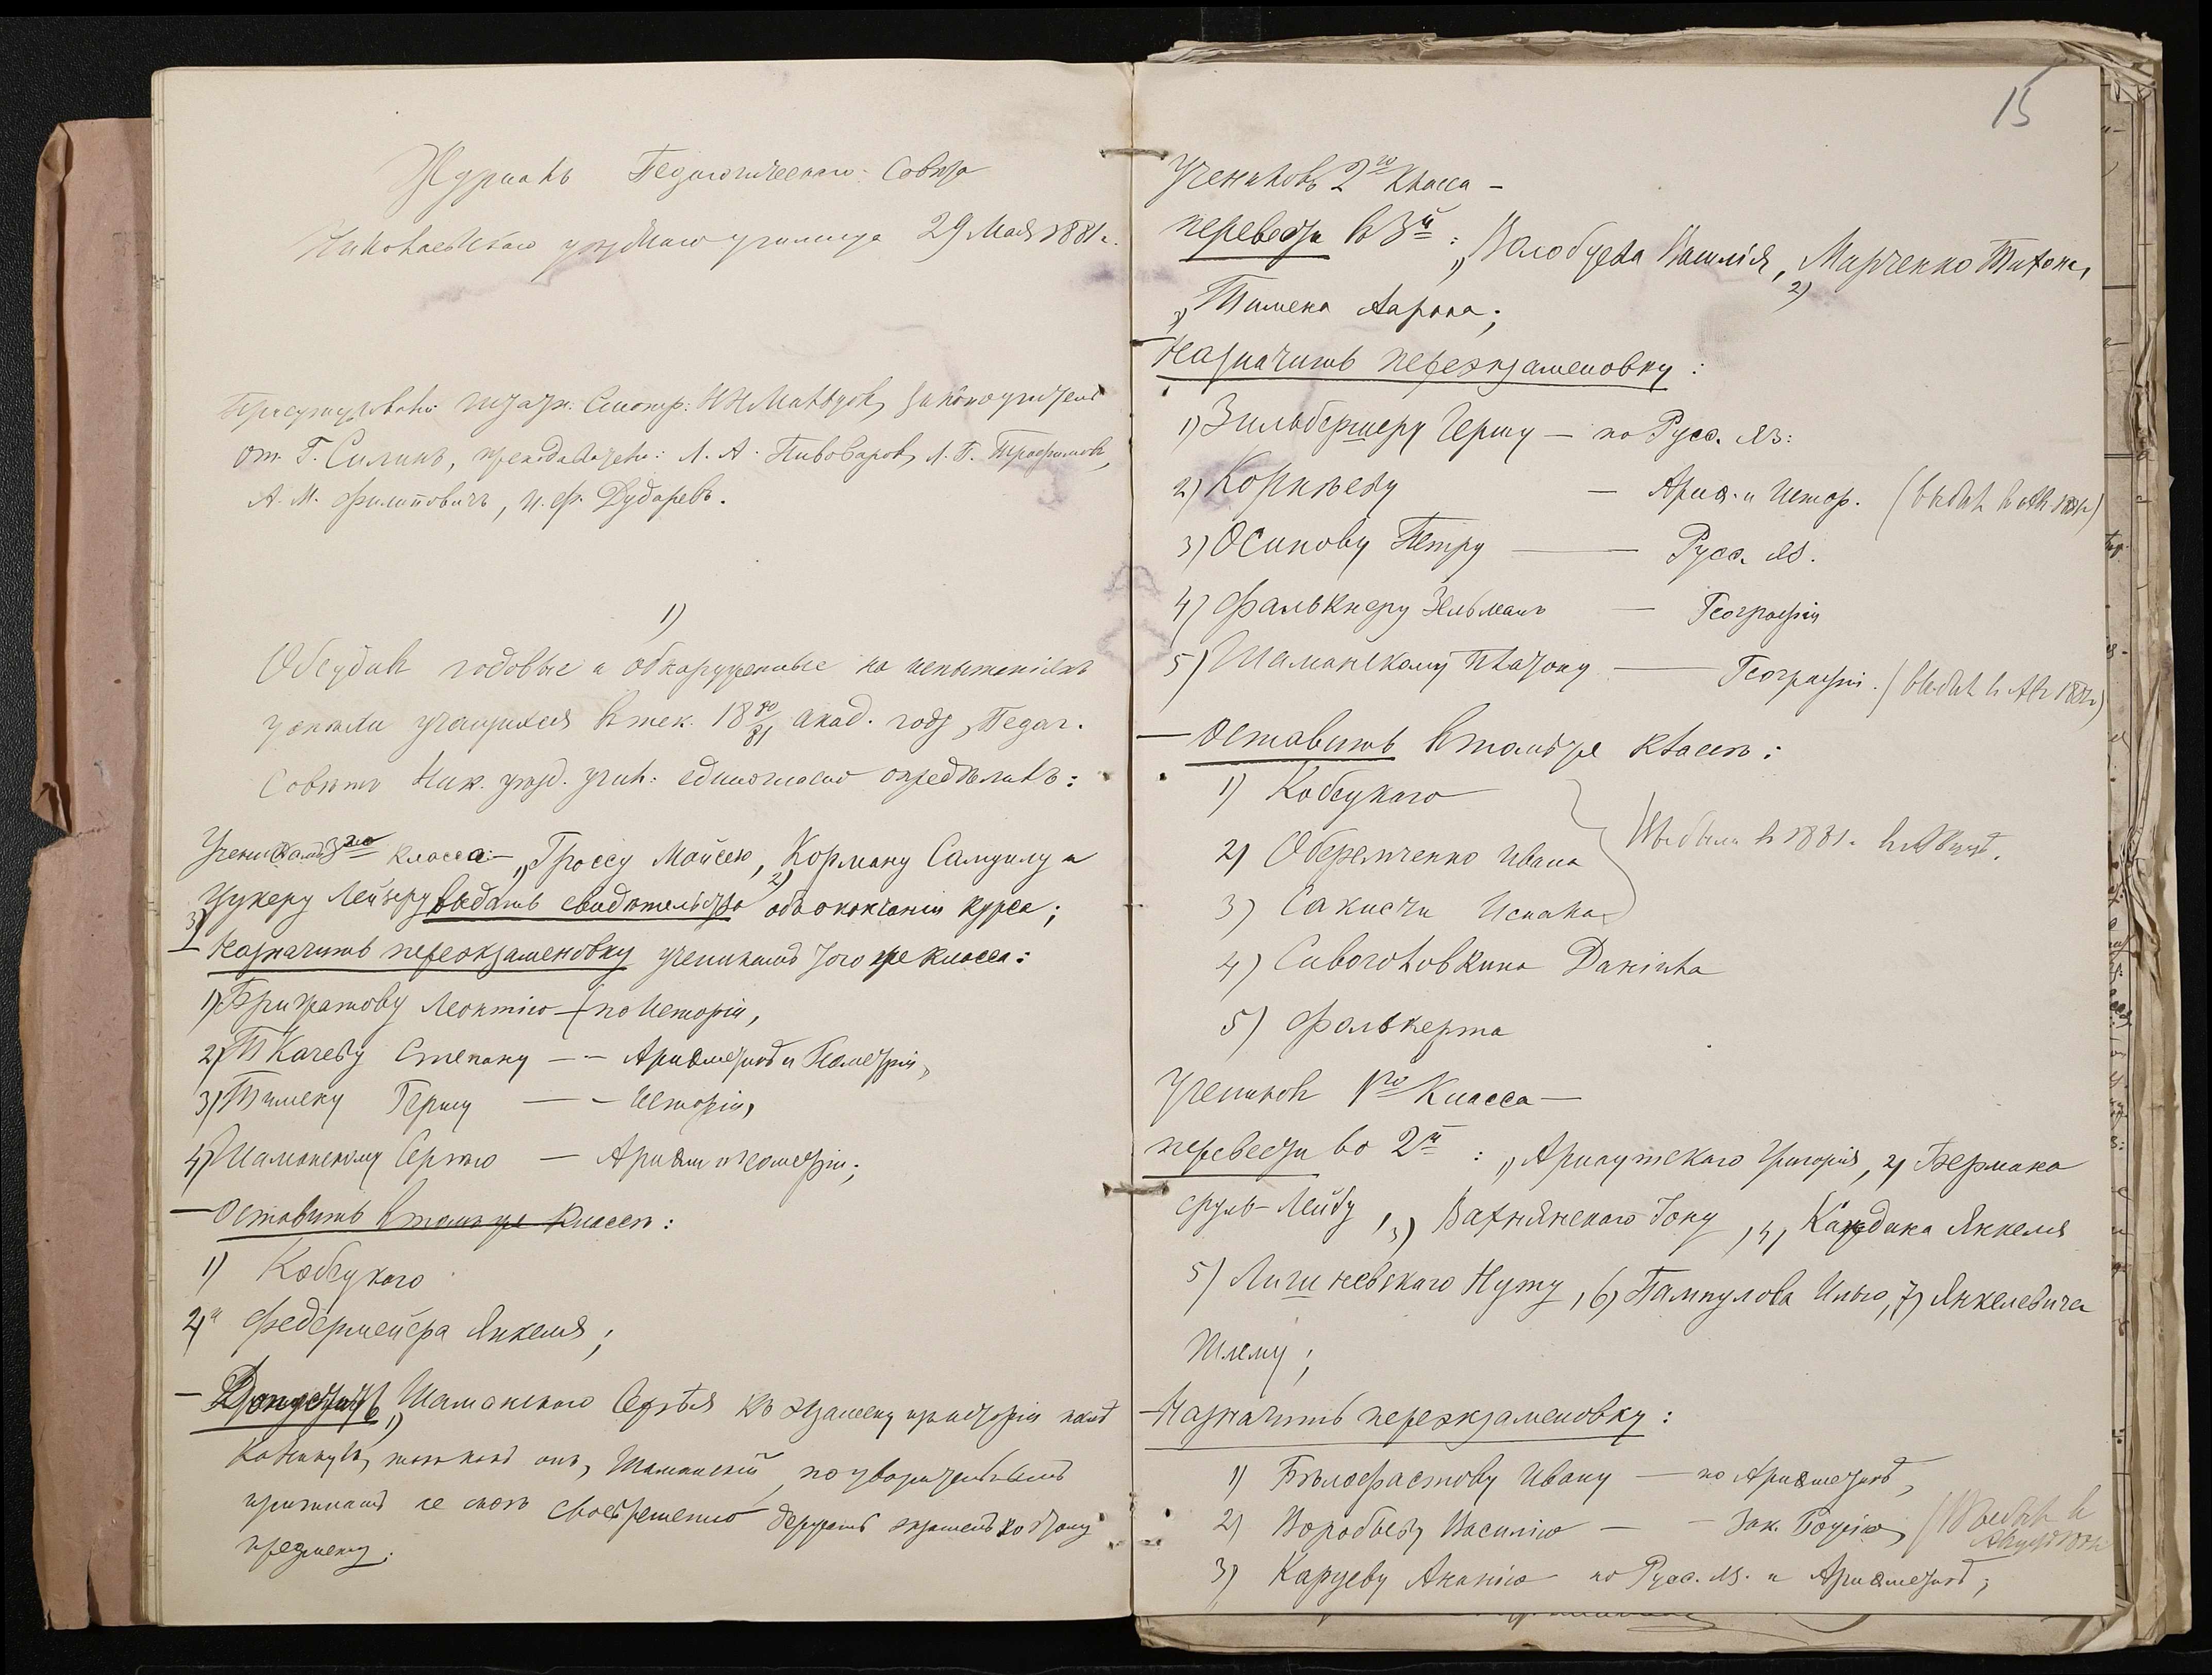 Журналъ Педагогическаго Совѣта
Николаевскаго уѣзднаго училища 29 Мая 1881 г.
Присутствовали: Штатн. Смотр: законоучитель
от. Г. Силинъ, преподаватели: Л. А. Пивоваровъ, Л. П. Трофимовъ,
А. М. Филиповичъ, И. Ф. Дударевъ.
1)
Обсудивъ годовые и обнаруженные на испытаніяхъ
успѣхи учащихся въ тек. 18 80/81 акад. году, Педаг.
Совѣтъ Ник. уѣзд. учил: единогласно опредѣлилъ:
Ученикамъ 3го класса:— 1) Гроссу Мойсею, 2) Корману Самуилу и
3) Цукеру Лейзеру выдать свидѣтельства объ окончаніи курса;
— Назначить переэкзаменовку ученикамъ того же класса:
1) Бригратову Леонтію — по Исторіи,
2) Ткачеву Степану — — Ариѳметикѣ и Геометріи,
3) Тимеку Гершу — — Исторіи,
4) Шаманскому Сергѣю — Ариѳм и Геометріи;
— Оставить въ томъ же классѣ:
1) Кобецкого
2) и Федермейера Янкеля;
— Допустить 1) Шаманского Сергѣя къ экзамену по исторіи послѣ
каникулъ, такъ какъ онъ, Шаманскій, по уважительнымъ
причинамъ не могъ своевременно держать экзаменъ по этому
предмету.
15
Учениковъ 2го класса —
перевести въ 3й: 1) Валобуева Василія, 2) Марченко Тихона,
3) Тимека Аарона;
— Назначить переэкзаменовку:
1) Зильбершеру Гершу — по Русс. яз:
2) Корнѣеву — Ариѳ. и Истор. (выбылъ въ Авг. 1881 г)
3) Осипову Петру — Русс. яз.
4) Фалькнеру Зельману — Географіи
5) Шаманскому Платону — Географіи. (выбылъ въ Авг 1881 г)
— Оставить въ томъ же классѣ:
1) Кобецкаго
2) Оберемченко Ивана } Выбыли въ 1881 г. въ Августѣ.
3) Сакисчи Исаака
4) Сивоголовкина Даніила
5) Фолькерта
Учениковъ 1го Класса —
перевести во 2й: 1) Арнаутскаго Григорія, 2) Бермана
Сруль-Лейбу, 3) Вахнянскаго Іону, 4) Кардака Янкеля
5) Лишневскаго Нуту, 6) Пампулова Илью, 7) Янкелевича
Шлему;
— Назначить переэкзаменовку:
1) Бѣлофастову Ивану — по Ариѳметикѣ,
2) Воробьеву Василію — — Зак. Божію, (Выбылъ въ
Августѣ
3) Карцеву Ананію по Русс. яз. и Ариѳметикѣ;